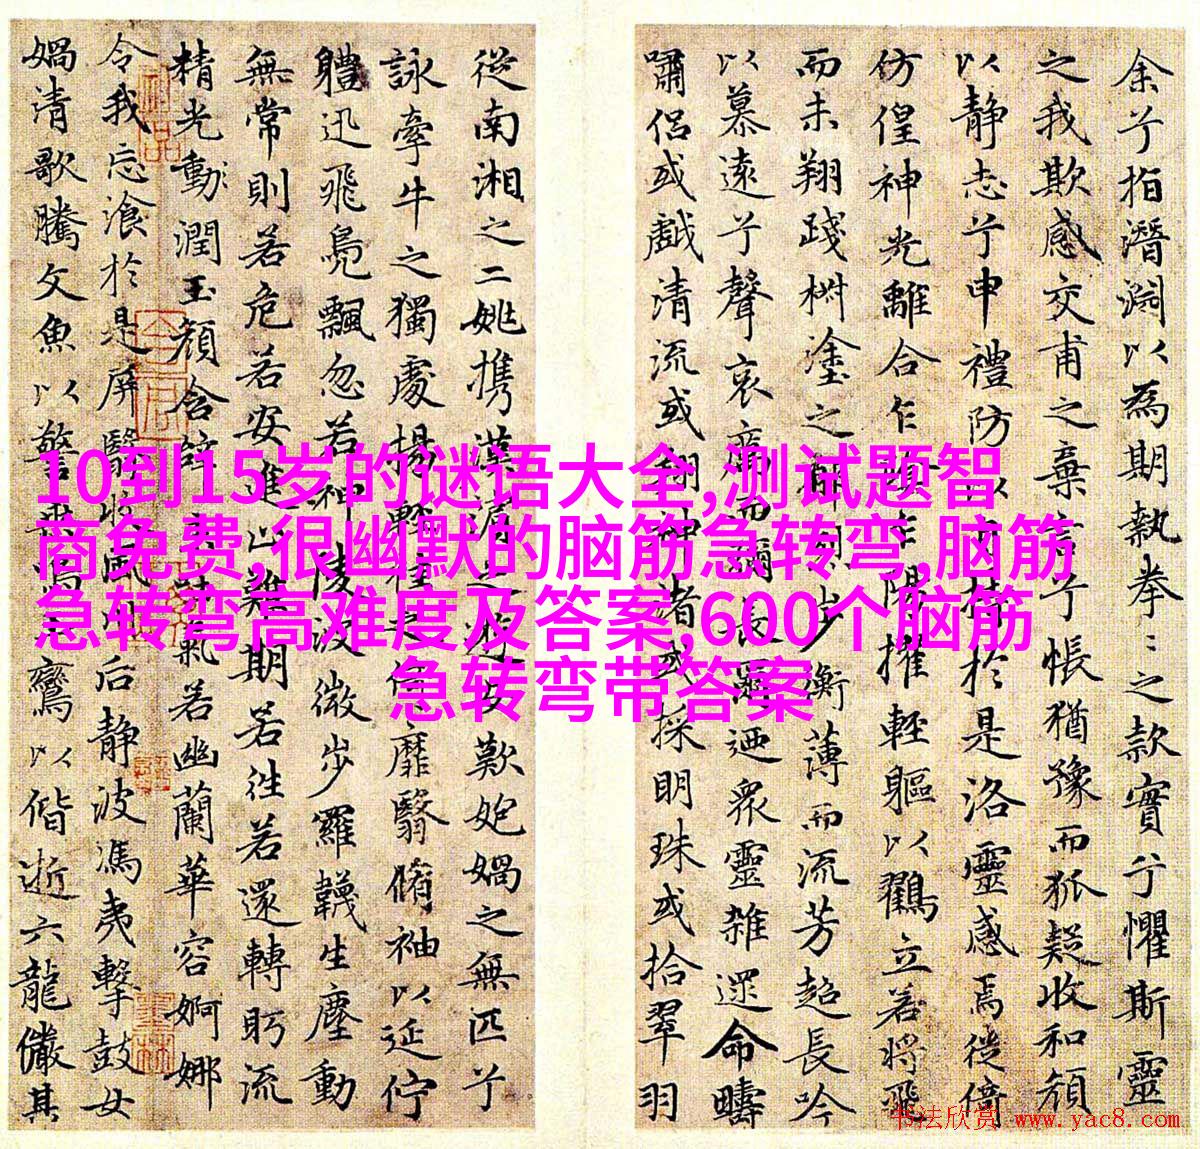 余兮指潛淵以為期執拳々之款實兮懼斯靈
之我欺感交甫之棄言兮悵猶豫而狐疑收和顏
以静志兮申禮防以自持於是洛靈感焉徙倚
仿偟神光離合乍陰乍陽擢輕軀以鸖立若将飛
而未翔踐椒塗之郁烈步衡薄而流芳超長吟
以慕遠兮聲哀厲而彌長爾迺眾靈雜遝命疇
嘯侶或戲清流或翔神渚或採明珠或拾翠羽
從南湘之二姚攜漢濱之遊女歎匏媧之無匹兮
詠牽牛之獨處揚輕袿之倚靡翳脩袖以延佇
體迅飛鳧飄忽若神陵波微步羅襪生塵動
無常則若危若安進止難期若往若還轉眄流
精光動潤玉顏含辭未吐氣若幽蘭華容婀娜
令我忘飡於是屏翳收風川后静波馮夷擊鼓女
媧清歌騰文魚以警乘鳴玉鸞以偕逝六龍儼其
10到15岁的谜语大全,测试题智
商免费,很幽默的脑筋急转弯,脑筋
急转弯高难度及答案,600个脑筋
急转弯带答案
书法欣赏 www.yac8.com